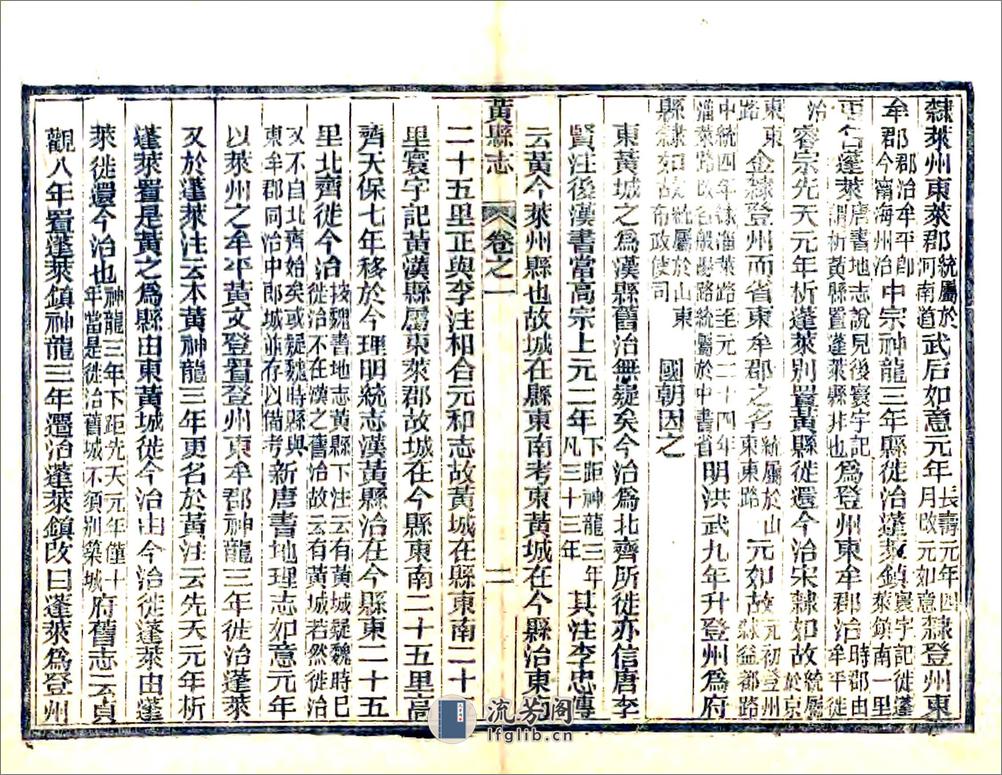 隸萊州東萊郡統屬於河南道武后如意元年長壽元年四月改元如意隸登州東
牟郡郡治牟平卽今甯海州治中宗神龍三年縣徙治蓬萊鎮寰宇記徙蓬萊鎮南一里
更名蓬萊唐書地志說見後寰宇記謂析黃縣置蓬萊縣非也爲登州東牟郡治時郡由牟平徙
治睿宗先天元年析蓬萊別置黃縣徙還今治宋隸如故統屬於京
東東路金隸登州而省東牟郡之名統屬於山東東路元如故元初登州隸益都路
中統四年隸淄萊路至元二十四年淄萊路改名般陽路統屬於中書省明洪武九年升登州爲府
縣隸如故統屬於山東布政使司國朝因之
東黃城之爲漢縣舊治無疑矣今治爲北齊所徙亦信唐李
賢注後漢書當高宗上元二年下距神龍三年凡三十三年其注李忠傳
云黃今萊州縣也故城在縣東南考東黃城在今縣治東南
黃縣志 卷之一 二
二十五里正與李注相合元和志故黃城在縣東南二十五
里寰宇記黃漢縣屬東萊郡故城在今縣東南二十五里高
齊天保七年移於今理明統志漢黃縣治在今縣東二十五
里北齊徙今治按魏書地志黃縣下注云有黃城疑魏時已徙治不在漢之舊治故云有黃城若然徙治
又不自北齊始矣或疑魏時縣與東牟郡同治中郎城並存以備考新唐書地理志如意元年
以萊州之牟平黃文登置登州東牟郡神龍三年徙治蓬萊
又於蓬萊注云本黃神龍三年更名於黃注云先天元年析
蓬萊置是黃之爲縣由東黃城徙今治由今治徙蓬萊由蓬
萊徙還今治也神龍三年下距先天元年僅十年當是徙治舊城不須別築城府舊志云貞
觀八年置蓬萊鎮神龍三年還治蓬萊鎮改曰蓬萊爲登州
流芳閣
lfglib.cn